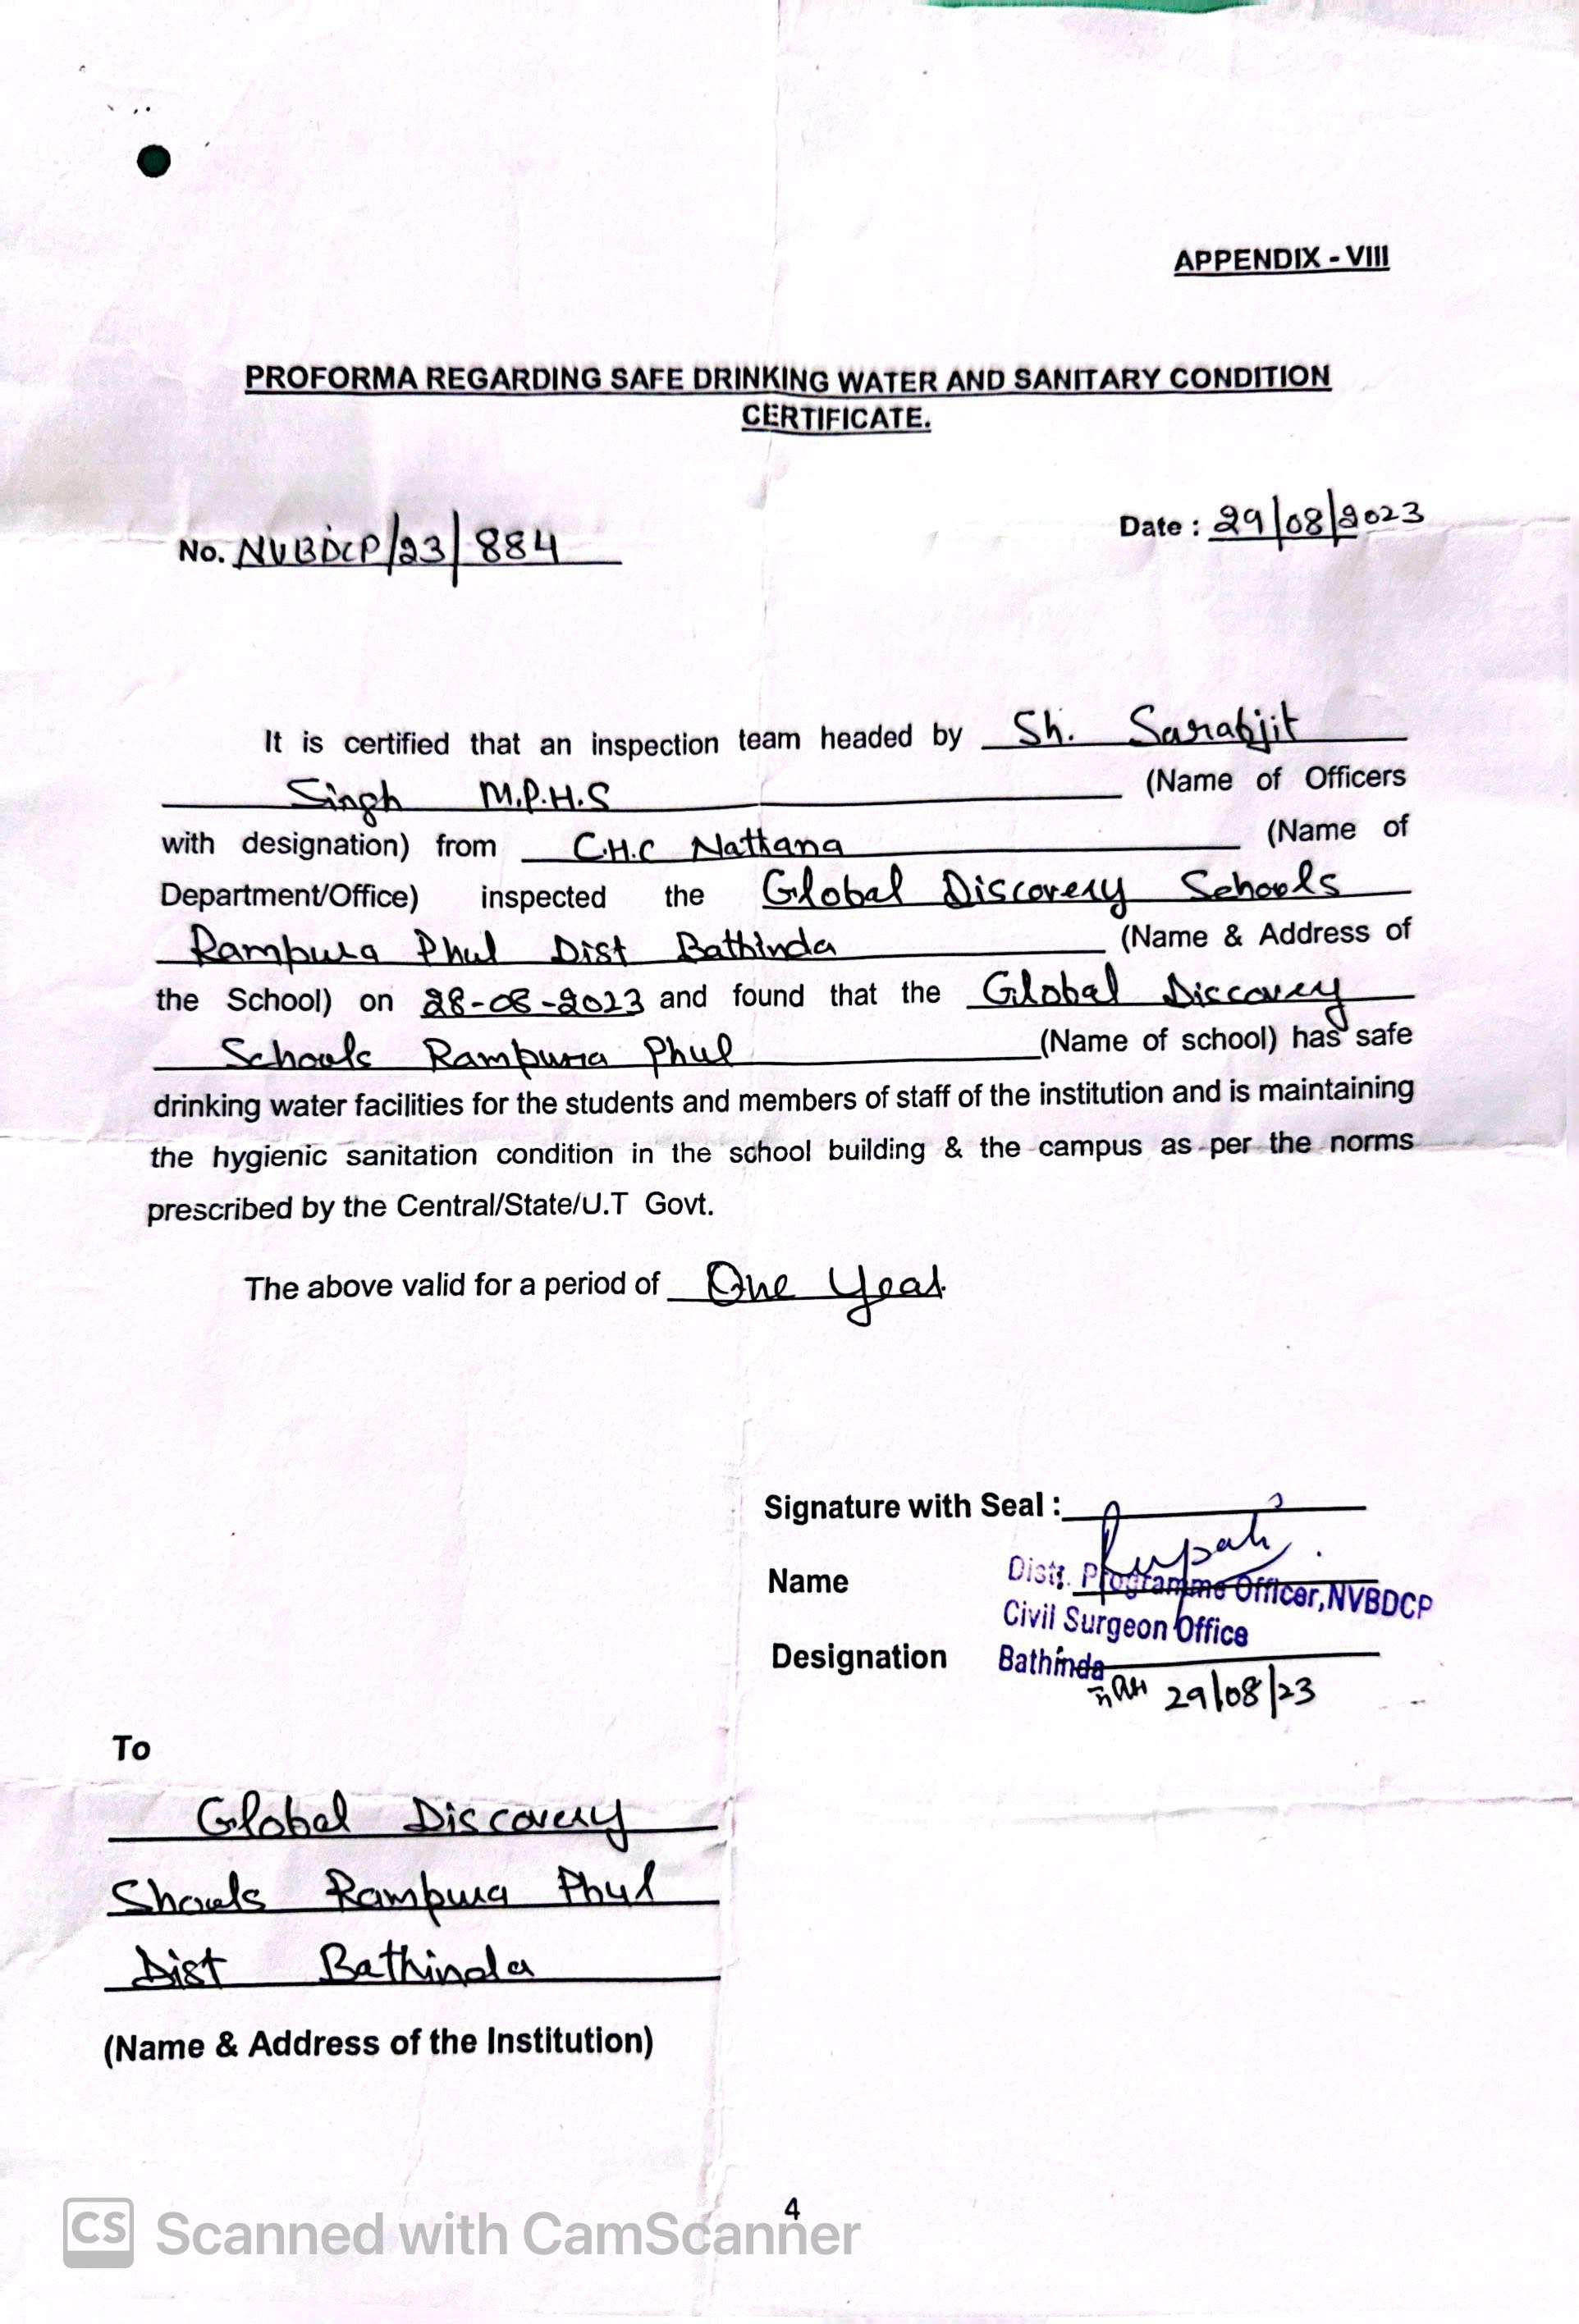 APPENDIX - VIII
PROFORMA REGARDING SAFE DRINKING WATER AND SANITARY CONDITION
CERTIFICATE.
No. NVBDCP/23/884
Date : 29/08/2023
It is certified that an inspection team headed by Sh. Sarabjit
Singh M.P.H.S (Name of Officers
with designation) from C.H.C Nathana (Name of
Department/Office) inspected the Global Discovery Schools
Rampura Phul Dist Bathinda (Name & Address of
the School) on 28-08-2023 and found that the Global Discovery
Schools Rampura Phul (Name of school) has safe
drinking water facilities for the students and members of staff of the institution and is maintaining
the hygienic sanitation condition in the school building & the campus as per the norms
prescribed by the Central/State/U.T Govt.
The above valid for a period of One Year.
Signature with Seal :
Name
Distt. Programme Officer, NVBDCP
Civil Surgeon Office
Designation Bathinda
29/08/23
To
Global Discovery
Shools Rampura Phul
Dist Bathinda
(Name & Address of the Institution)
4
CS Scanned with CamScanner